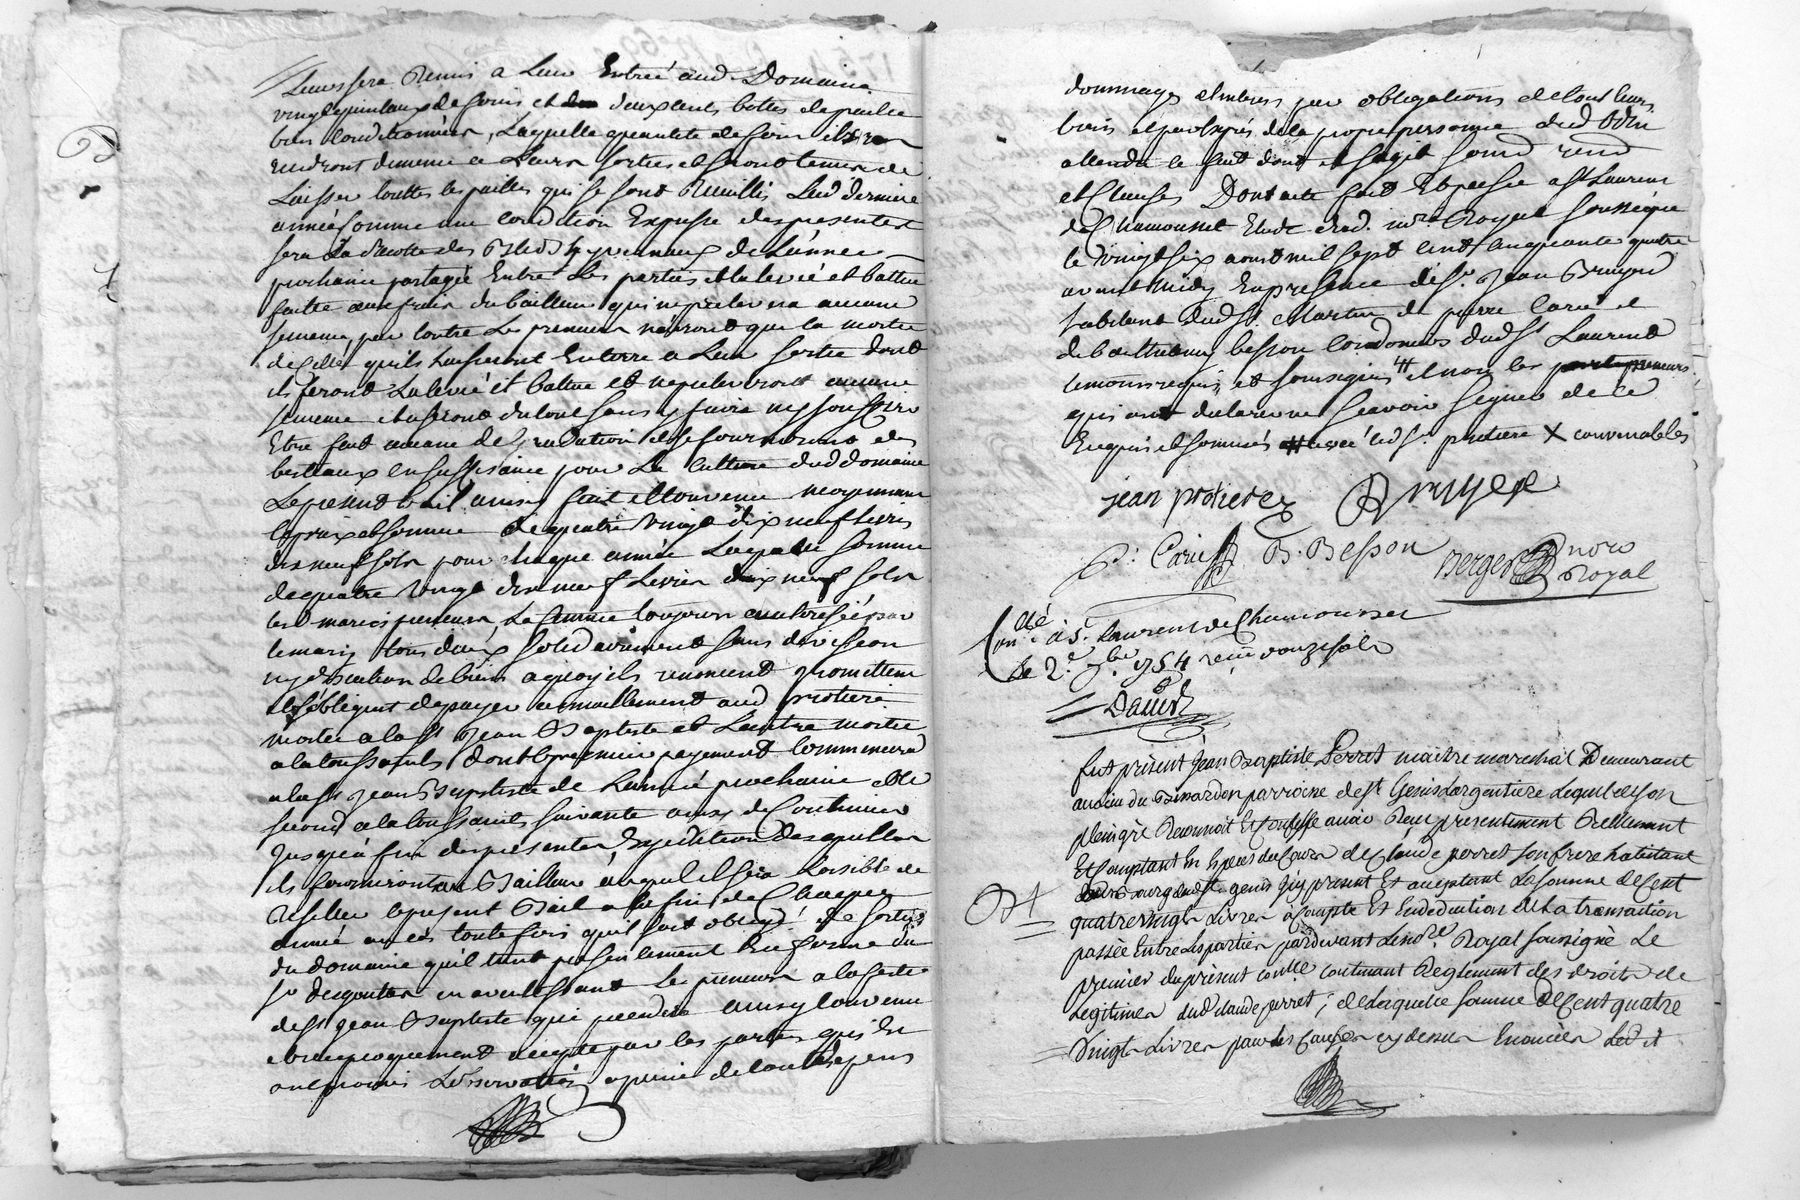 Leur sera Remis a Leur Entrée aud. Domaine
vingt quintaux de foins et deux cents bottes de paille
bien Conditionnées, Laquelle quantité de foin ils
rendront de meme a Leurs sorties et seront tenus de
Laisser touttes les pailles qui se sont Reuillis Lad. derniere
année comme une condition Expresse des presentes
sera La Recolte des Bleds hyvernaux de L'année
prochaine partagée Entre Les parties et la levée et battue
faitte aux frais du bailleur qui n'prelevera aucune
semence par contre Les preneurs n'auront que la moitié
de celles qu'ils Laisseront En terre a Leur sortie dont
ils feront La levée et battue et n'preleveront aucune
semence et useront du tout sans y faire ny souffrir
Etre fait aucune degradation et se fourniront des
bestiaux en suffisance pour La Culture dud. domaine
Le present bail ainsy fait et convenu moyennant
le prix et somme de quatre vingt dix neuf livres
dix neuf sols pour chaque année Laquelle somme
de quatre vingt dix neuf Livres dix neuf sols
les maries preneurs, La femme toujours authorisée par
le mary tous deux solidairement sans division
ny discution de biens a quoy ils renoncent promettent
et s'obligent de payer annuellement aud. protiere
moitié a la St Jean Baptiste et L'autre moitié
a la toussaints dont le premier payement Commencera
a la St Jean Baptiste de L'année prochaine et le
second a la toussaints suivante ainsy de Continuer
Jusqu'a fin des presentes, Expedition desquelles
ils fourniront au Bailleur auquel il sera Loisible de
Resilier le present Bail a la fin de Chaque
année au cas toutefois qu'il soit obligé de sortir
du domaine qu'il tient presentement En ferme du
Sr Desgouttes en avertissant Les preneurs a la feste
de St Jean Baptiste qui precedera ainsy convenu
et reciproquement accepté par les parties qui En
ont promis L'observation a peine de tous depens
dommages et interets par obligations de tous leurs
biens et par exprés de la propre personne dud. Odin
attendu le fait dont il s'agit soumd. rend.
et Clauses Dont acte fait Et passé a St Laurent
de Chamousset Etude dud. nore. Royal soussigné
le vingt six aoust mil sept cent cinquante quatre
avant midy En presence de Sr. Jean Bruyere
habitant dud. St. Martin de pierre Carié et
de barthelemy besson Cordoniers dud. St Laurent
temoins requis et soussignés # et non les preneurs
qui ont declaré ne scavoir signer de ce
Enquis et sommés # avec led. Sr. protiere X convenables
jean protiere Bruyere
P. Carié B. Besson Berger nore
Royal
Conlé. a St. Laurent de Chamousset
le 2.e 7.bre 1754 reçu douze sols
David
fut présent Jean Baptiste Perret maitre marechal Demeurant
au lieu du Bernardon parroisse de St Genis L'argentiere Lequel de son
plein gré Reconnoit Et Confesse avoir Reçu presentement Reellement
Et Comptant En Especes du Cours de Claude perret son frere habitant
bourg dud. St. genis Icy present Et acceptant La somme de Cent
quatre vingt Livres à Compte Et En deduction de La transaction
passée Entre Les parties pardevant Le nore. Royal soussigné Le
premier du present contle contenant Reglement des droits de
Legitimes dud. claude perret ; de Laquelle somme de Cent quatre
Vingt Livres pour Les Causes cy dessus Enoncées Led. St